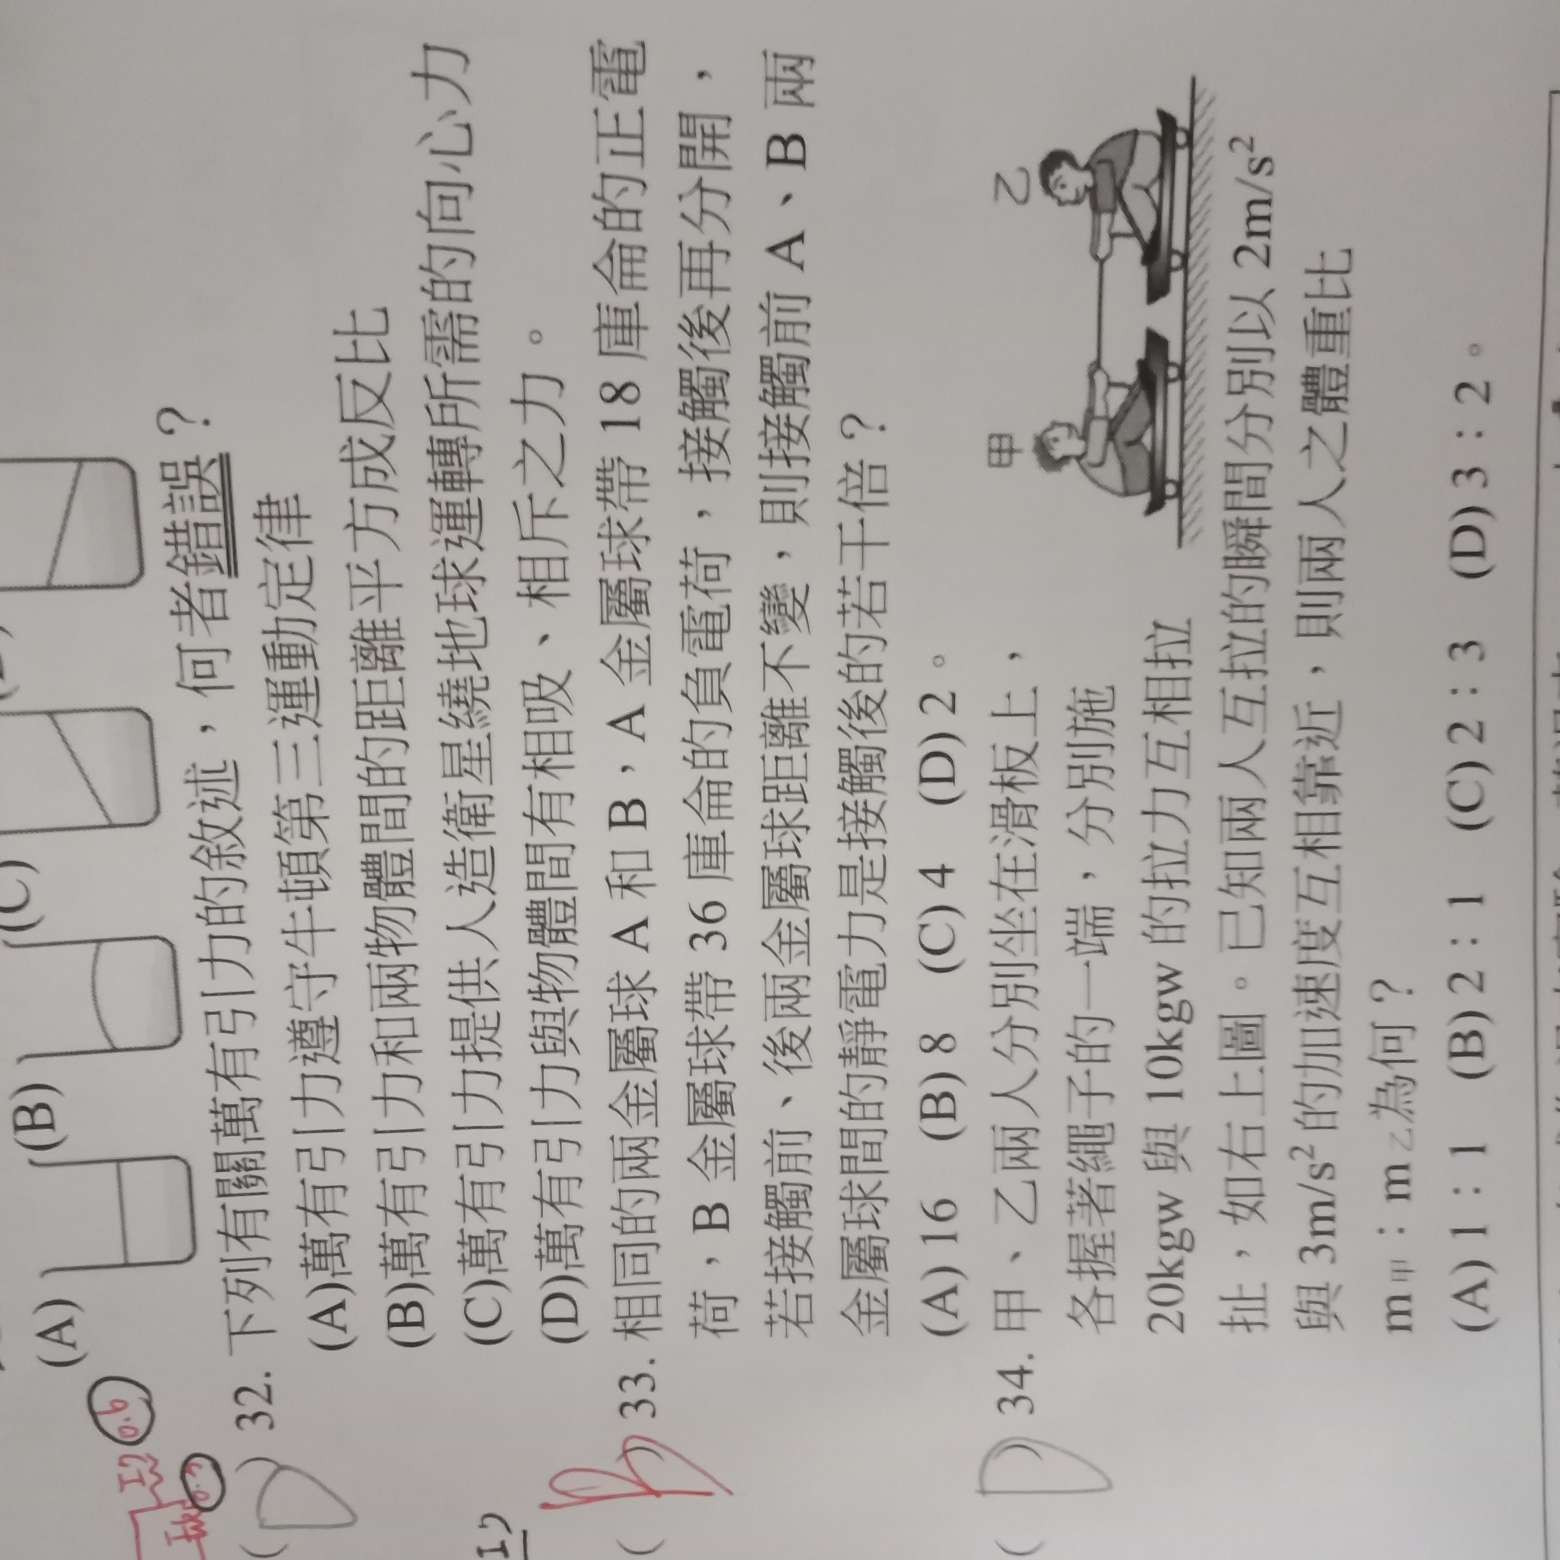 (A)
(B)
(C)
32. 下列有關萬有引力的敘述，何者錯誤？
(A)萬有引力遵守牛頓第三運動定律
(B)萬有引力和兩物體間的距離平方成反比
(C)萬有引力提供人造衛星繞地球運轉所需的向心力
(D)萬有引力與物體間有相吸、相斥之力。
( D )
33. 相同的兩金屬球 A 和 B，A 金屬球帶 18 庫侖的正電
荷，B 金屬球帶 36 庫侖的負電荷，接觸後再分開，
若接觸前、後兩金屬球距離不變，則接觸前 A、B 兩
金屬球間的靜電力是接觸後的若干倍？
(A) 16 (B) 8 (C) 4 (D) 2。
( B )
34. 甲、乙兩人分別坐在滑板上，
各握著繩子的一端，分別施
20kgw 與 10kgw 的拉力互相拉
扯，如右上圖。已知兩人互拉的瞬間分別以 2m/s²
與 3m/s² 的加速度互相靠近，則兩人之體重比
m甲：m乙為何？
(A) 1：1 (B) 2：1 (C) 2：3 (D) 3：2。
( D )
甲
乙